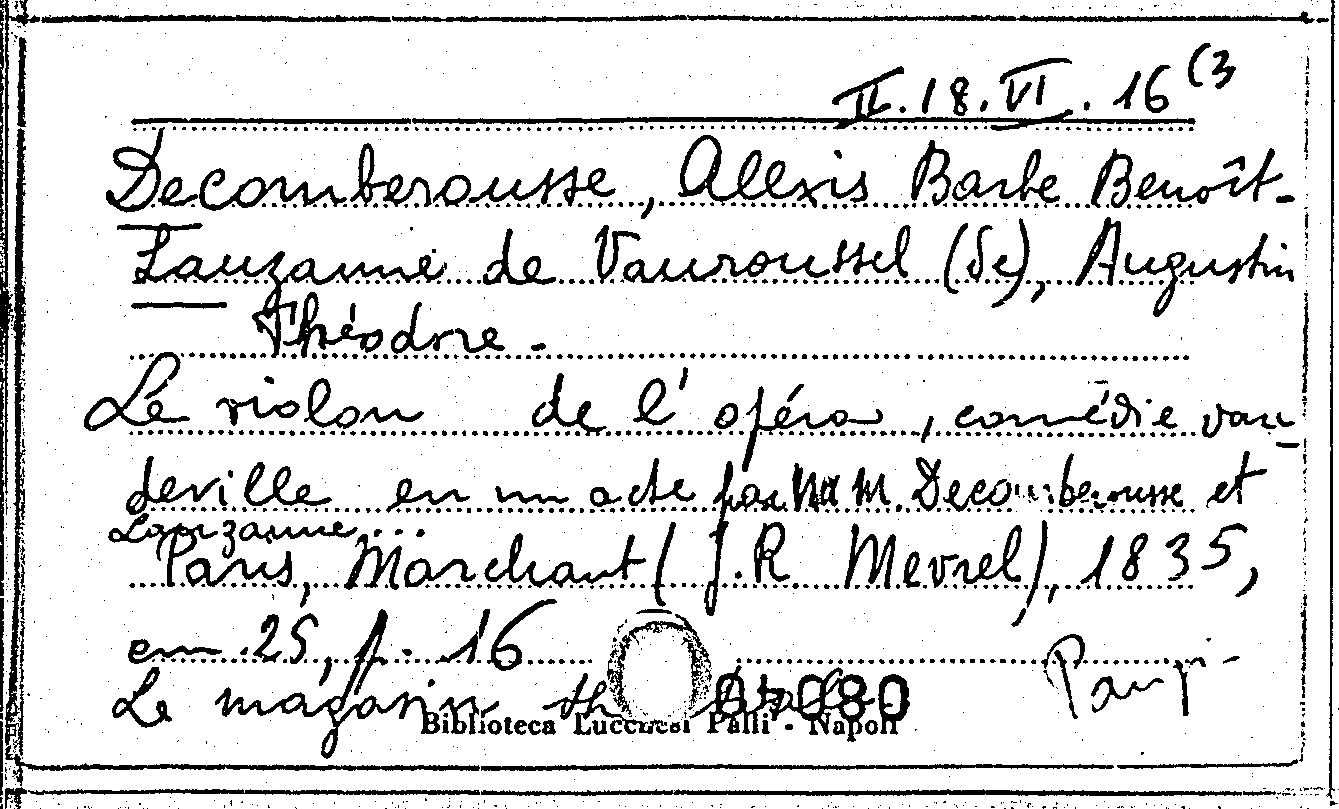 II.18.VI.16(3
Decomberousse, Alexis Barbe Benoît-
Lauzanne de Vauroussel (de), Augustin
Théodore -
Le violon de l'opéra, comédie vau-
deville en un acte par MM. Decomberousse et
Lauzanne...
Paris, Marchant (J.R Mevrel), 1835,
cm. 25, p. 16
Le magasin
04080
Biblioteca Lucchesi Palli - Napoli